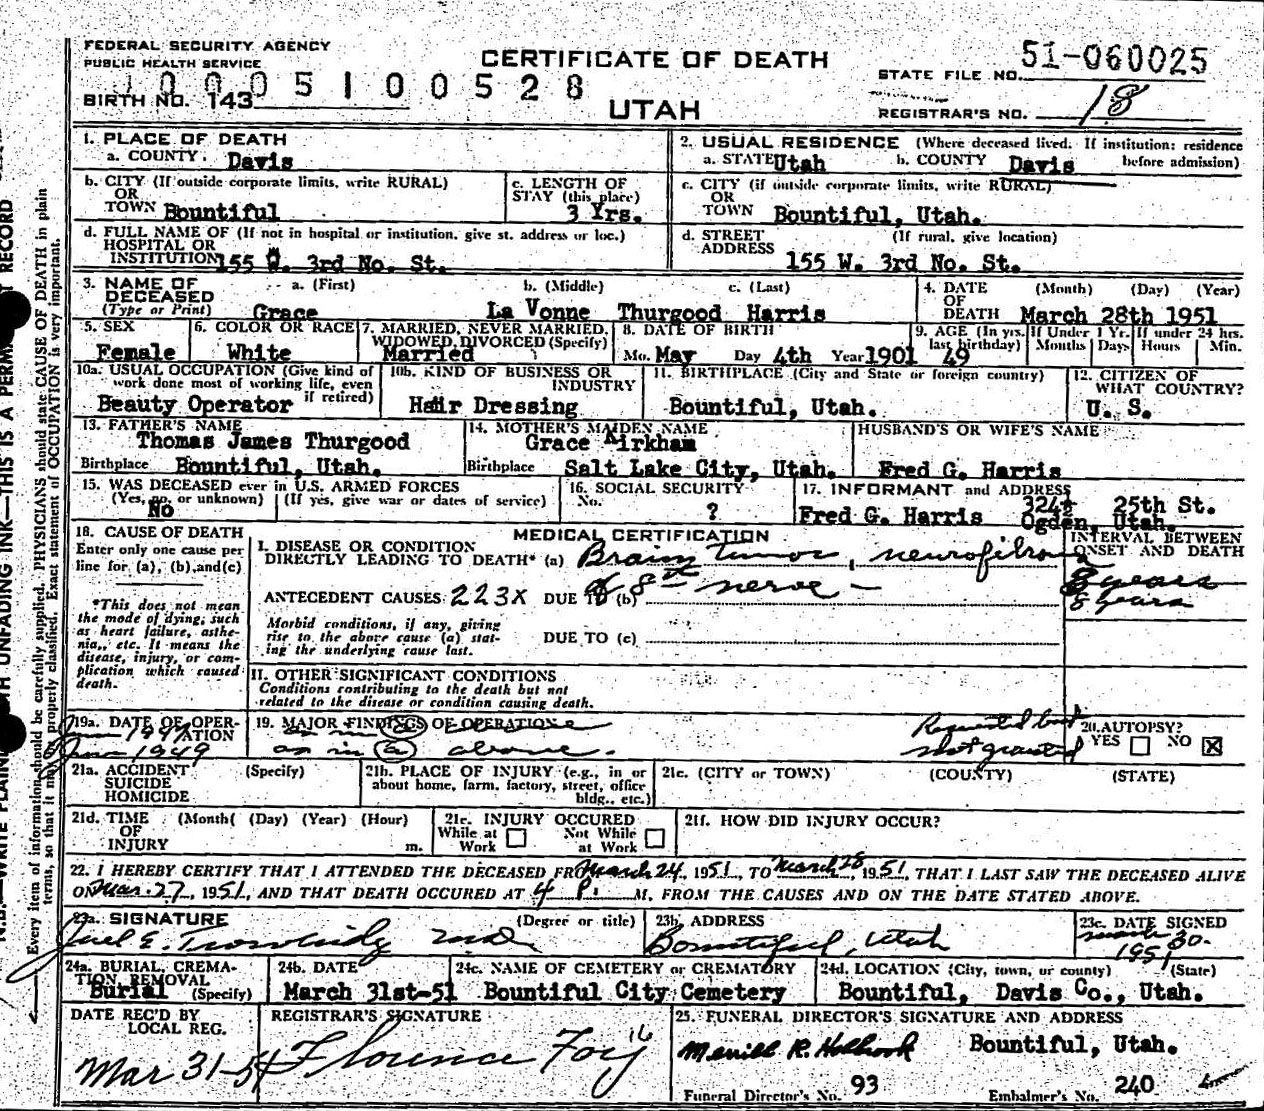 FEDERAL SECURITY AGENCY
PUBLIC HEALTH SERVICE
10005100528
BIRTH NO. 143
CERTIFICATE OF DEATH
UTAH
51-060025
STATE FILE NO.
REGISTRAR'S NO. 18
1. PLACE OF DEATH
a. COUNTY. Davis
2. USUAL RESIDENCE (Where deceased lived. If institution: residence before admission)
a. STATE Utah b. COUNTY Davis
b. CITY (If outside corporate limits, write RURAL)
OR
TOWN Bountiful
c. LENGTH OF STAY (this place)
3 Yrs.
c. CITY (if outside corporate limits, write RURAL)
OR
TOWN Bountiful, Utah.
d. FULL NAME OF (If not in hospital or institution, give st. address or loc.)
HOSPITAL OR
INSTITUTION 155 W. 3rd No. St.
d. STREET ADDRESS (If rural, give location)
155 W. 3rd No. St.
3. NAME OF DECEASED (Type or Print)
a. (First) b. (Middle) c. (Last)
Grace La Vonne Thurgood Harris
4. DATE OF DEATH (Month) (Day) (Year)
March 28th 1951
5. SEX
Female
6. COLOR OR RACE
White
7. MARRIED, NEVER MARRIED, WIDOWED, DIVORCED (Specify)
Married
8. DATE OF BIRTH
Mo. May Day 4th Year 1901
9. AGE (In yrs. last birthday) 49
If Under 1 Yr. Months Days
If under 24 hrs. Hours Min.
10a. USUAL OCCUPATION (Give kind of work done most of working life, even if retired)
Beauty Operator
10b. KIND OF BUSINESS OR INDUSTRY
Hair Dressing
11. BIRTHPLACE (City and State or foreign country)
Bountiful, Utah.
12. CITIZEN OF WHAT COUNTRY?
U. S.
13. FATHER'S NAME
Thomas James Thurgood
Birthplace Bountiful, Utah.
14. MOTHER'S MAIDEN NAME
Grace Kirkham
Birthplace Salt Lake City, Utah.
HUSBAND'S OR WIFE'S NAME
Fred G. Harris
15. WAS DECEASED ever in U.S. ARMED FORCES
(Yes, no, or unknown) (If yes, give war or dates of service)
No
16. SOCIAL SECURITY
No. ?
17. INFORMANT and ADDRESS
Fred G. Harris 324½ 25th St.
Ogden, Utah.
18. CAUSE OF DEATH
Enter only one cause per line for (a), (b), and (c)
*This does not mean the mode of dying, such as heart failure, asthenia, etc. It means the disease, injury, or complication which caused death.
MEDICAL CERTIFICATION
INTERVAL BETWEEN ONSET AND DEATH
I. DISEASE OR CONDITION
DIRECTLY LEADING TO DEATH* (a) Brain tumor, neurofibroma
of 8th nerve -
8 years
8 years
ANTECEDENT CAUSES 223X DUE TO (b)
Morbid conditions, if any, giving rise to the above cause (a) stating the underlying cause last.
DUE TO (c)
II. OTHER SIGNIFICANT CONDITIONS
Conditions contributing to the death but not
related to the disease or condition causing death.
19a. DATE OF OPERATION
1949
19. MAJOR FINDINGS OF OPERATION
as in (a) above
as in (a) above.
Requested but
not granted
20. AUTOPSY?
YES ☐ NO ☒
21a. ACCIDENT (Specify)
SUICIDE
HOMICIDE
21b. PLACE OF INJURY (e.g., in or about home, farm, factory, street, office bldg., etc.)
21c. (CITY or TOWN) (COUNTY) (STATE)
21d. TIME OF INJURY (Month( (Day) (Year) (Hour) m.
21e. INJURY OCCURED
While at Work ☐ Not While at Work ☐
21f. HOW DID INJURY OCCUR?
22. I HEREBY CERTIFY THAT I ATTENDED THE DECEASED FROM March 24, 1951, TO March 28, 1951, THAT I LAST SAW THE DECEASED ALIVE
ON Mar. 27, 1951, AND THAT DEATH OCCURED AT 4 P. M, FROM THE CAUSES AND ON THE DATE STATED ABOVE.
23a. SIGNATURE (Degree or title)
Joel E. Trowbridge MD
23b. ADDRESS
Bountiful, Utah
23c. DATE SIGNED
March 30-
1951
24a. BURIAL, CREMATION REMOVAL (Specify)
Burial
24b. DATE
March 31st-51
24c. NAME OF CEMETERY or CREMATORY
Bountiful City Cemetery
24d. LOCATION (City, town, or county) (State)
Bountiful, Davis Co., Utah.
DATE REC'D BY LOCAL REG.
Mar 31-51
REGISTRAR'S SIGNATURE
Florence Foy
16
25. FUNERAL DIRECTOR'S SIGNATURE AND ADDRESS
Merrill R. Holbrook Bountiful, Utah.
Funeral Director's No. 93 Embalmer's No. 240
Every item of information should be carefully supplied. PHYSICIANS should state CAUSE OF DEATH in plain
terms, so that it may be properly classified. Exact statement of OCCUPATION is very important.